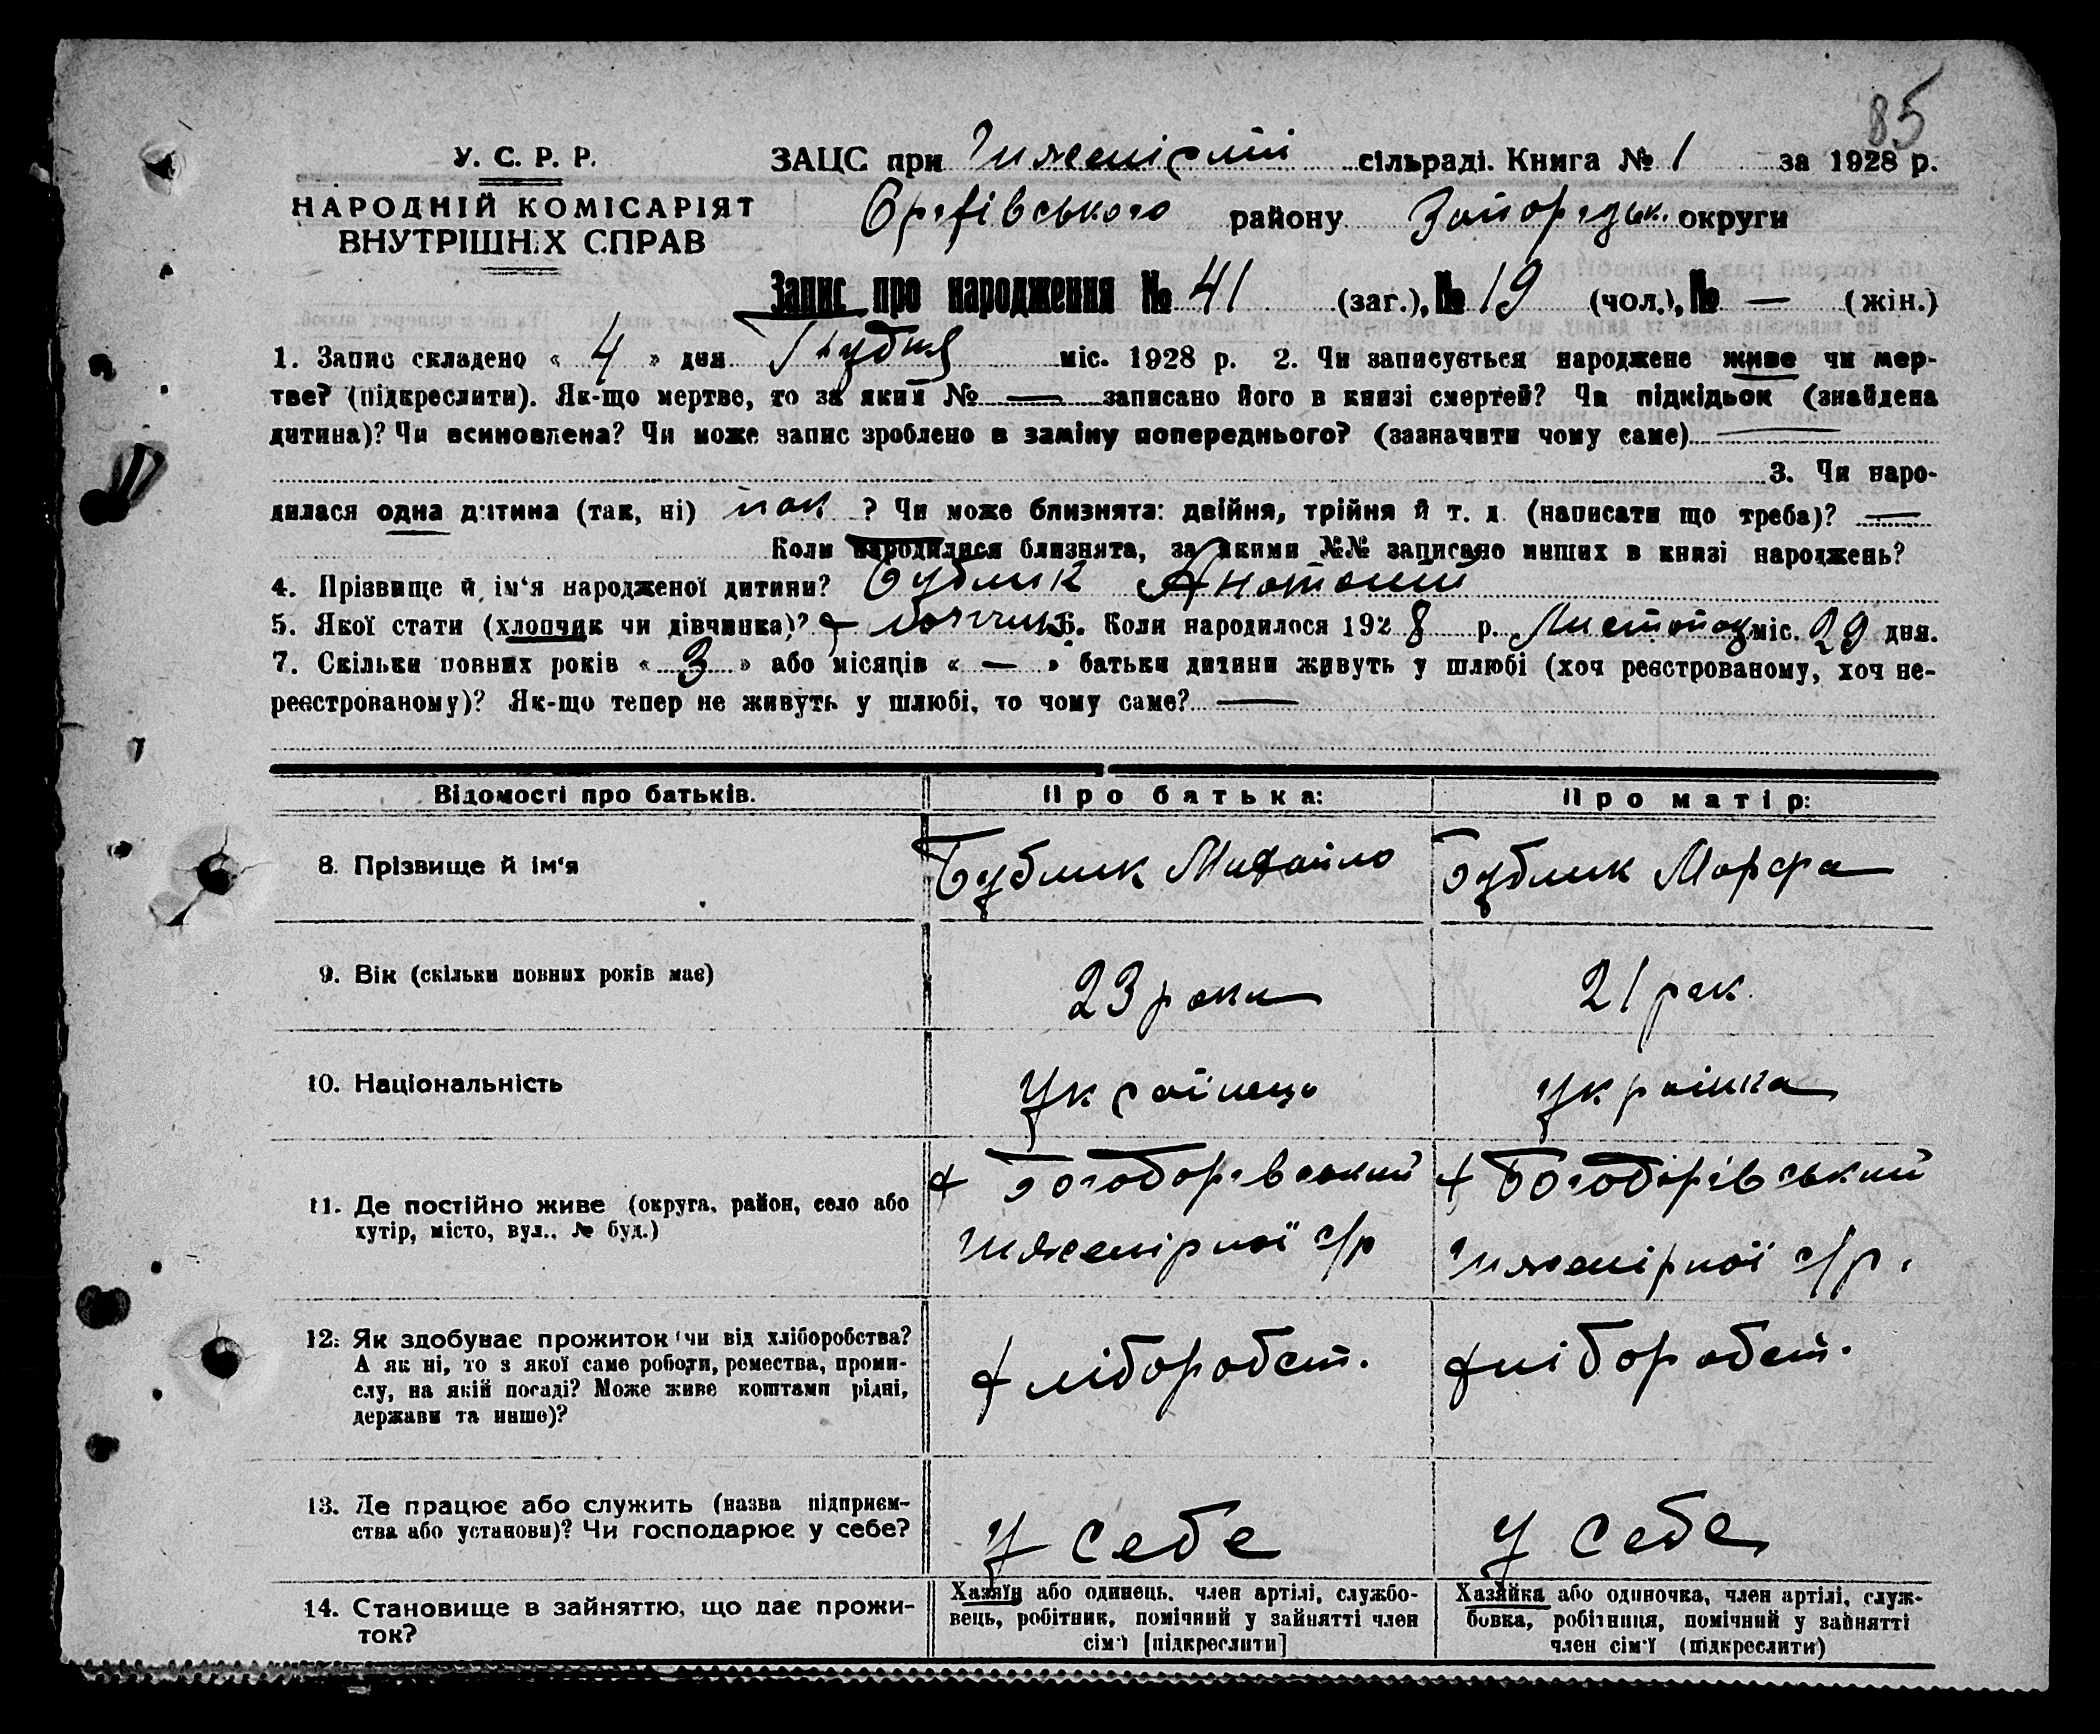 85
У. С. Р. Р.
НАРОДНІЙ КОМІСАРІЯТ
ВНУТРІШНІХ СПРАВ
ЗАЦС при Інженірній сільраді. Книга № 1 за 1928 р.
району Запоріжськ. округи
Запис про народження № 41 (заг.), № 19 (чол.), № — (жін.)
1. Запис складено « 4 » дня Грудня міс. 1928 р. 2. Чи записується народжене живе чи мер-
тве? (підкреслити). Як-що мертве, то за яким № — записано його в книзі смертей? Чи підкідьок (знайдена
дитина)? Чи всиновлена? Чи може запис зроблено в заміну попереднього? (зазначити чому саме) —
3. Чи наро-
дилася одна дитина (так, ні) так ? Чи може близнята: двійня, трійня й т. д. (написати що треба)? —
Коли народилися близнята, за якими №№ записано инших в книзі народжень?
4. Прізвище й ім‘я народженої дитини? Бублик Анатоний
5. Якої стати (хлопчик чи дівчинка)? хлопчик 6. Коли народилося 1928 р. Листопад міс. 29 дня.
7. Скільки повних років « 3 » або місяців « — » батьки дитини живуть у шлюбі (хоч реєстрованому, хоч не-
реєстрованому)? Як-що тепер не живуть у шлюбі, то чому саме? —
Відомості про батьків. Про батька: Про матір:
8. Прізвище й ім‘я Бублик Михайло Бублик Марфа
9. Вік (скільки повних років має) 23 роки 21 рок.
10. Національність Українець українка
11. Де постійно живе (округа, район, село або
хутір, місто, вул., № буд.)
х Богоборівський х Богоборівський
Інженірної с/р Інженірної с/р.
12. Як здобуває прожиток чи від хліборобства?
А як ні, то з якої саме роботи, ремества, проми-
слу, на якій посаді? Може живе коштами рідні,
держави та инше)?
хліборобст. хліборобст.
13. Де працює або служить (назва підприєм-
ства або установи)? Чи господарює у себе?
у себе у себе
14. Становище в зайняттю, що дає прожи-
ток?
Хазяїн або одинець, член артілі, службо-
вець, робітник, помічний у зайнятті член
сім'ї [підкреслити]
Хазяйка або одиночка, член артілі, служ-
бовка, робітниця, помічний у зайнятті
член сім'ї (підкреслити)